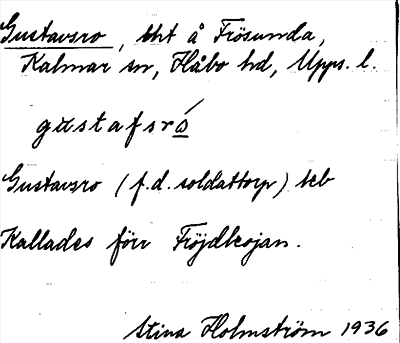 Gustavsro, tht å Frösunda,
Kalmar sn, Håbo hd, Upps. l.
gustafsró
Gustavsro (f.d. soldattorp) teb
Kallades förr Fröjdbojan.
Stina Holmström 1936